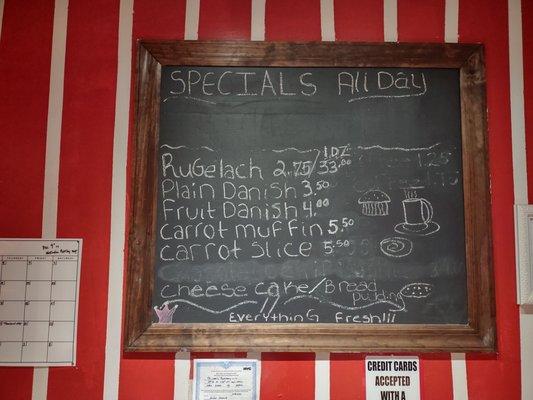 SPECIALS All Day
1.DZ
Rugelach 2.75/33.00
Plain Danish 3.50
Fruit Danish 4.00
carrot muffin 5.50
carrot slice 5.50
cheese cake/Bread
pudding
Everything Fresh!!!
1.25
CREDIT CARDS
ACCEPTED
WITH A